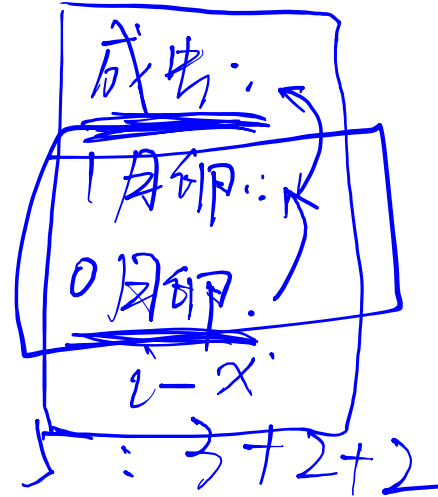 成虫:
1月卵:
0月卵:
i-x
5:3+2+2